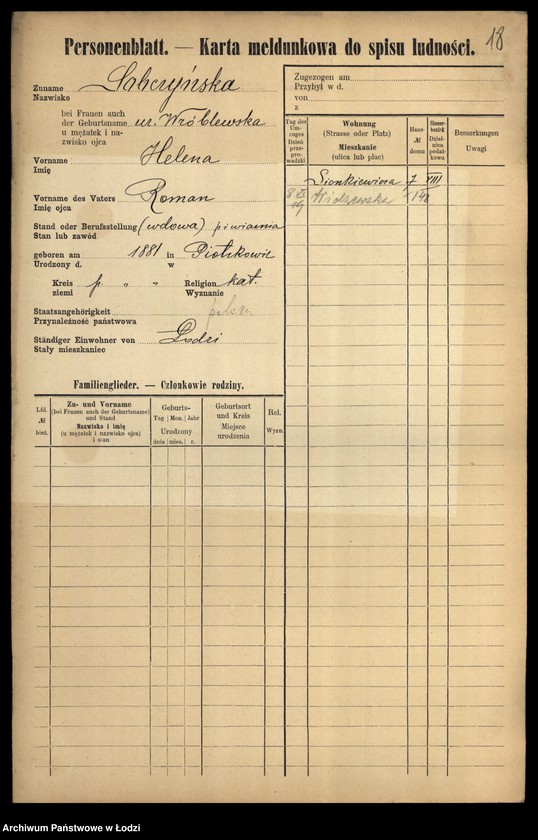 18
Personenblatt. — Karta meldunkowa do spisu ludności.
Zuname
Nazwisko
bei Frauen auch
der Geburtsname ur. Wróblewska
u mężatek i na-
zwisko ojca
Vorname Helena
Imię
Vorname des Vaters Roman
Imię ojca
Stand oder Berufsstellung (wdowa) piwiarnia
Stan lub zawód
geboren am 1881 in
Urodzony d. w
Kreis p „ „ Religion kat.
ziemi Wyznanie
Staatsangehörigkeit polska
Przynależność państwowa
Ständiger Einwohner von Łodzi
Stały mieszkaniec
Zugezogen am
Przybył w d.
von
z
Tag des Um-zuges
Dzień prze-prowadzki
Wohnung
(Strasse oder Platz)
Mieszkanie
(ulica lub plac)
Haus-
№
domu
Steuer-bezirk
Dzielnica podat-kowa
Bemerkungen
Uwagi
Sienkiewicza 7 XIII
8 XI 19 Widzewska
Familienglieder. — Członkowie rodziny.
Lfd.
№
bież.
Zu- und Vorname
(bei Frauen auch der Geburtsname)
und Stand
Nazwisko i imię
(u mężatek i nazwisko ojca)
i stan
Geburts-
Tag | Mon. | Jahr
Urodzony
dnia | mies. | r.
Geburtsort
und Kreis
Miejsce
urodzenia
Rel.
Wyzn.
Archiwum Państwowe w Łodzi